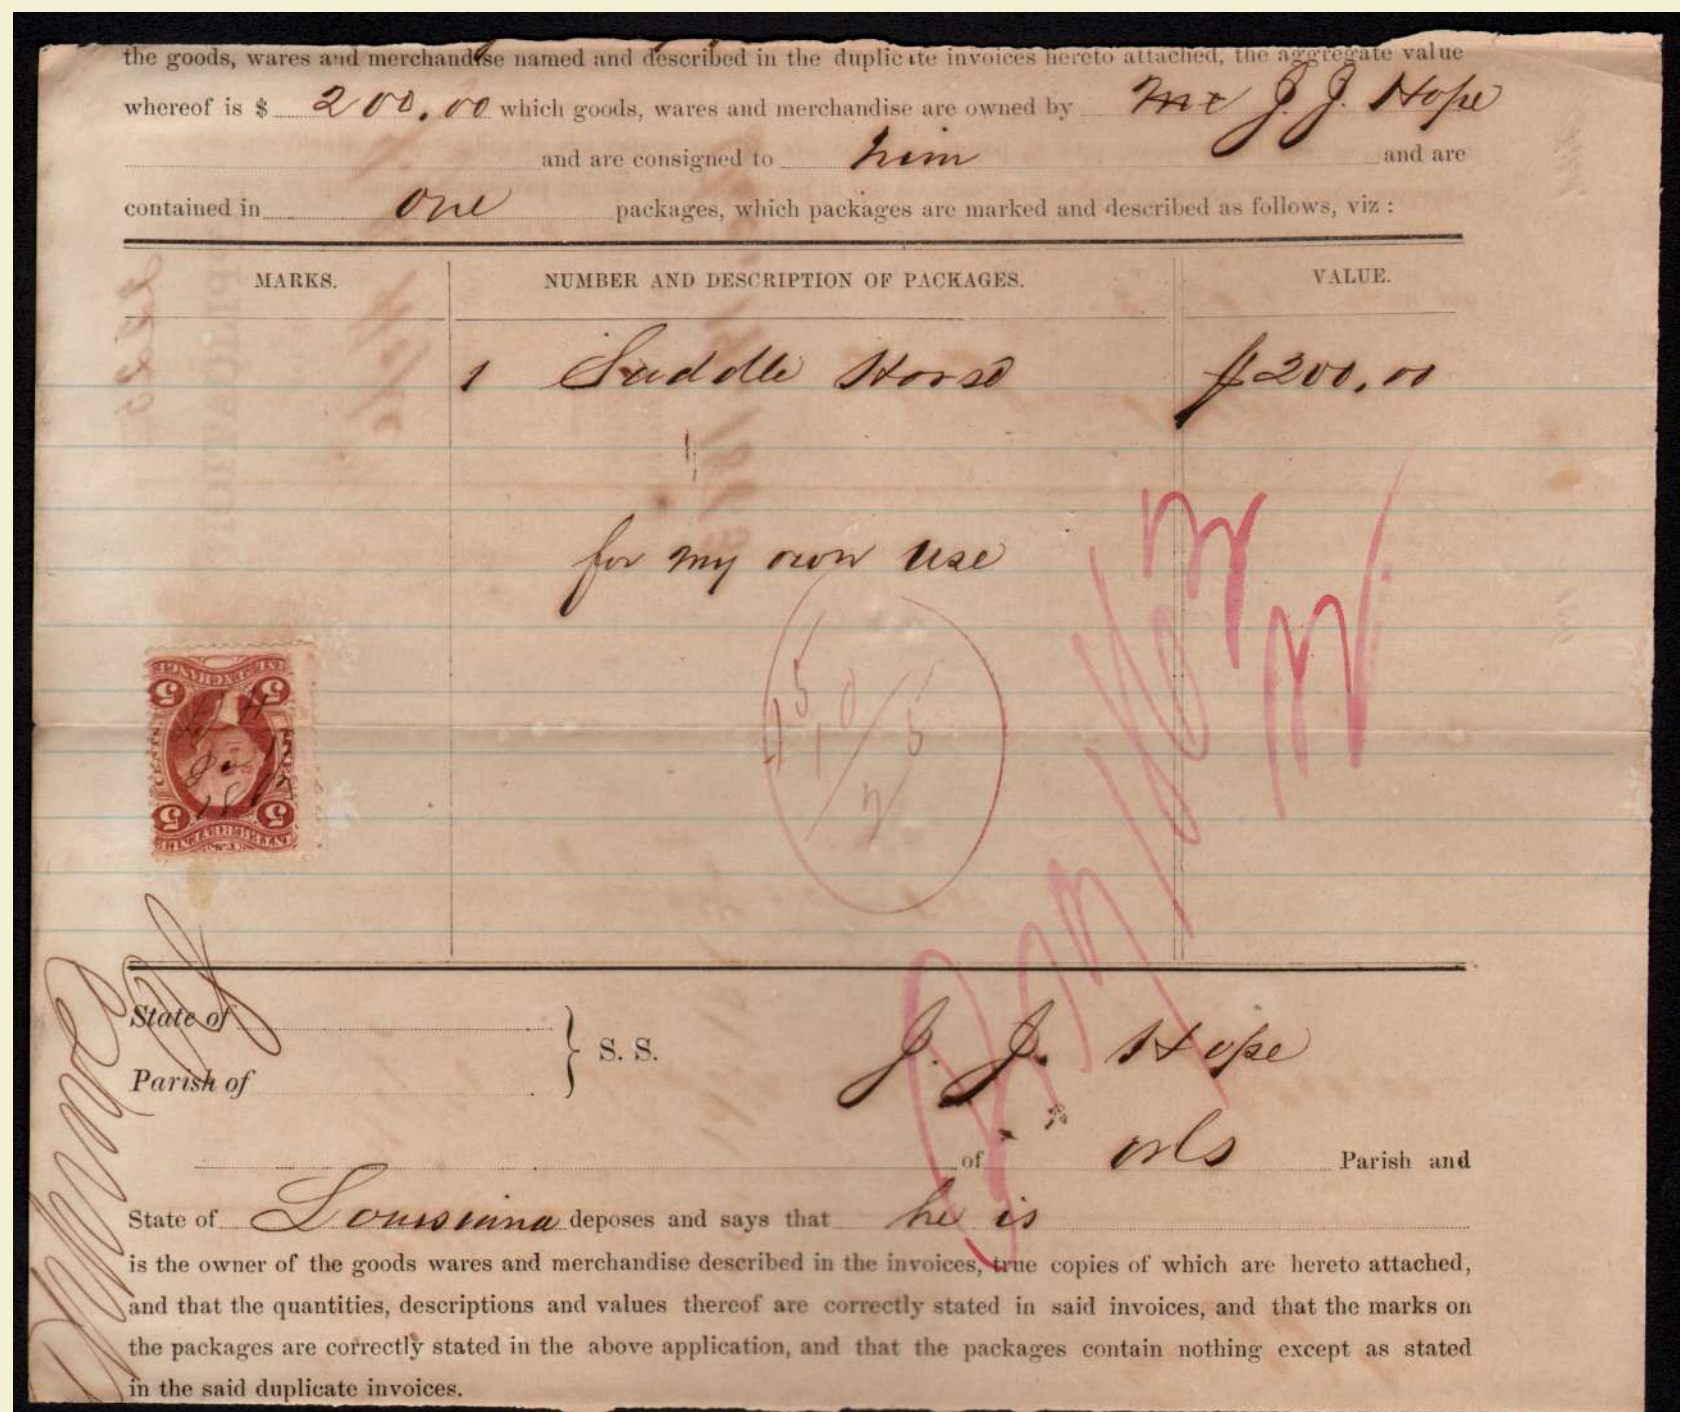 the goods, wares and merchandise named and described in the duplicate invoices hereto attached, the aggregate value
whereof is $ 200.00 which goods, wares and merchandise are owned by Mr J. J. Hope
and are consigned to him and are
contained in one packages, which packages are marked and described as follows, viz :
MARKS. NUMBER AND DESCRIPTION OF PACKAGES. VALUE.
1 Saddle Horse $200.00
for my own use
5 5
CENTS
5 5
State of
Parish of
} S. S.
J. J. Hope
of orls Parish and
State of Louisiana deposes and says that he is
is the owner of the goods wares and merchandise described in the invoices, true copies of which are hereto attached,
and that the quantities, descriptions and values thereof are correctly stated in said invoices, and that the marks on
the packages are correctly stated in the above application, and that the packages contain nothing except as stated
in the said duplicate invoices.